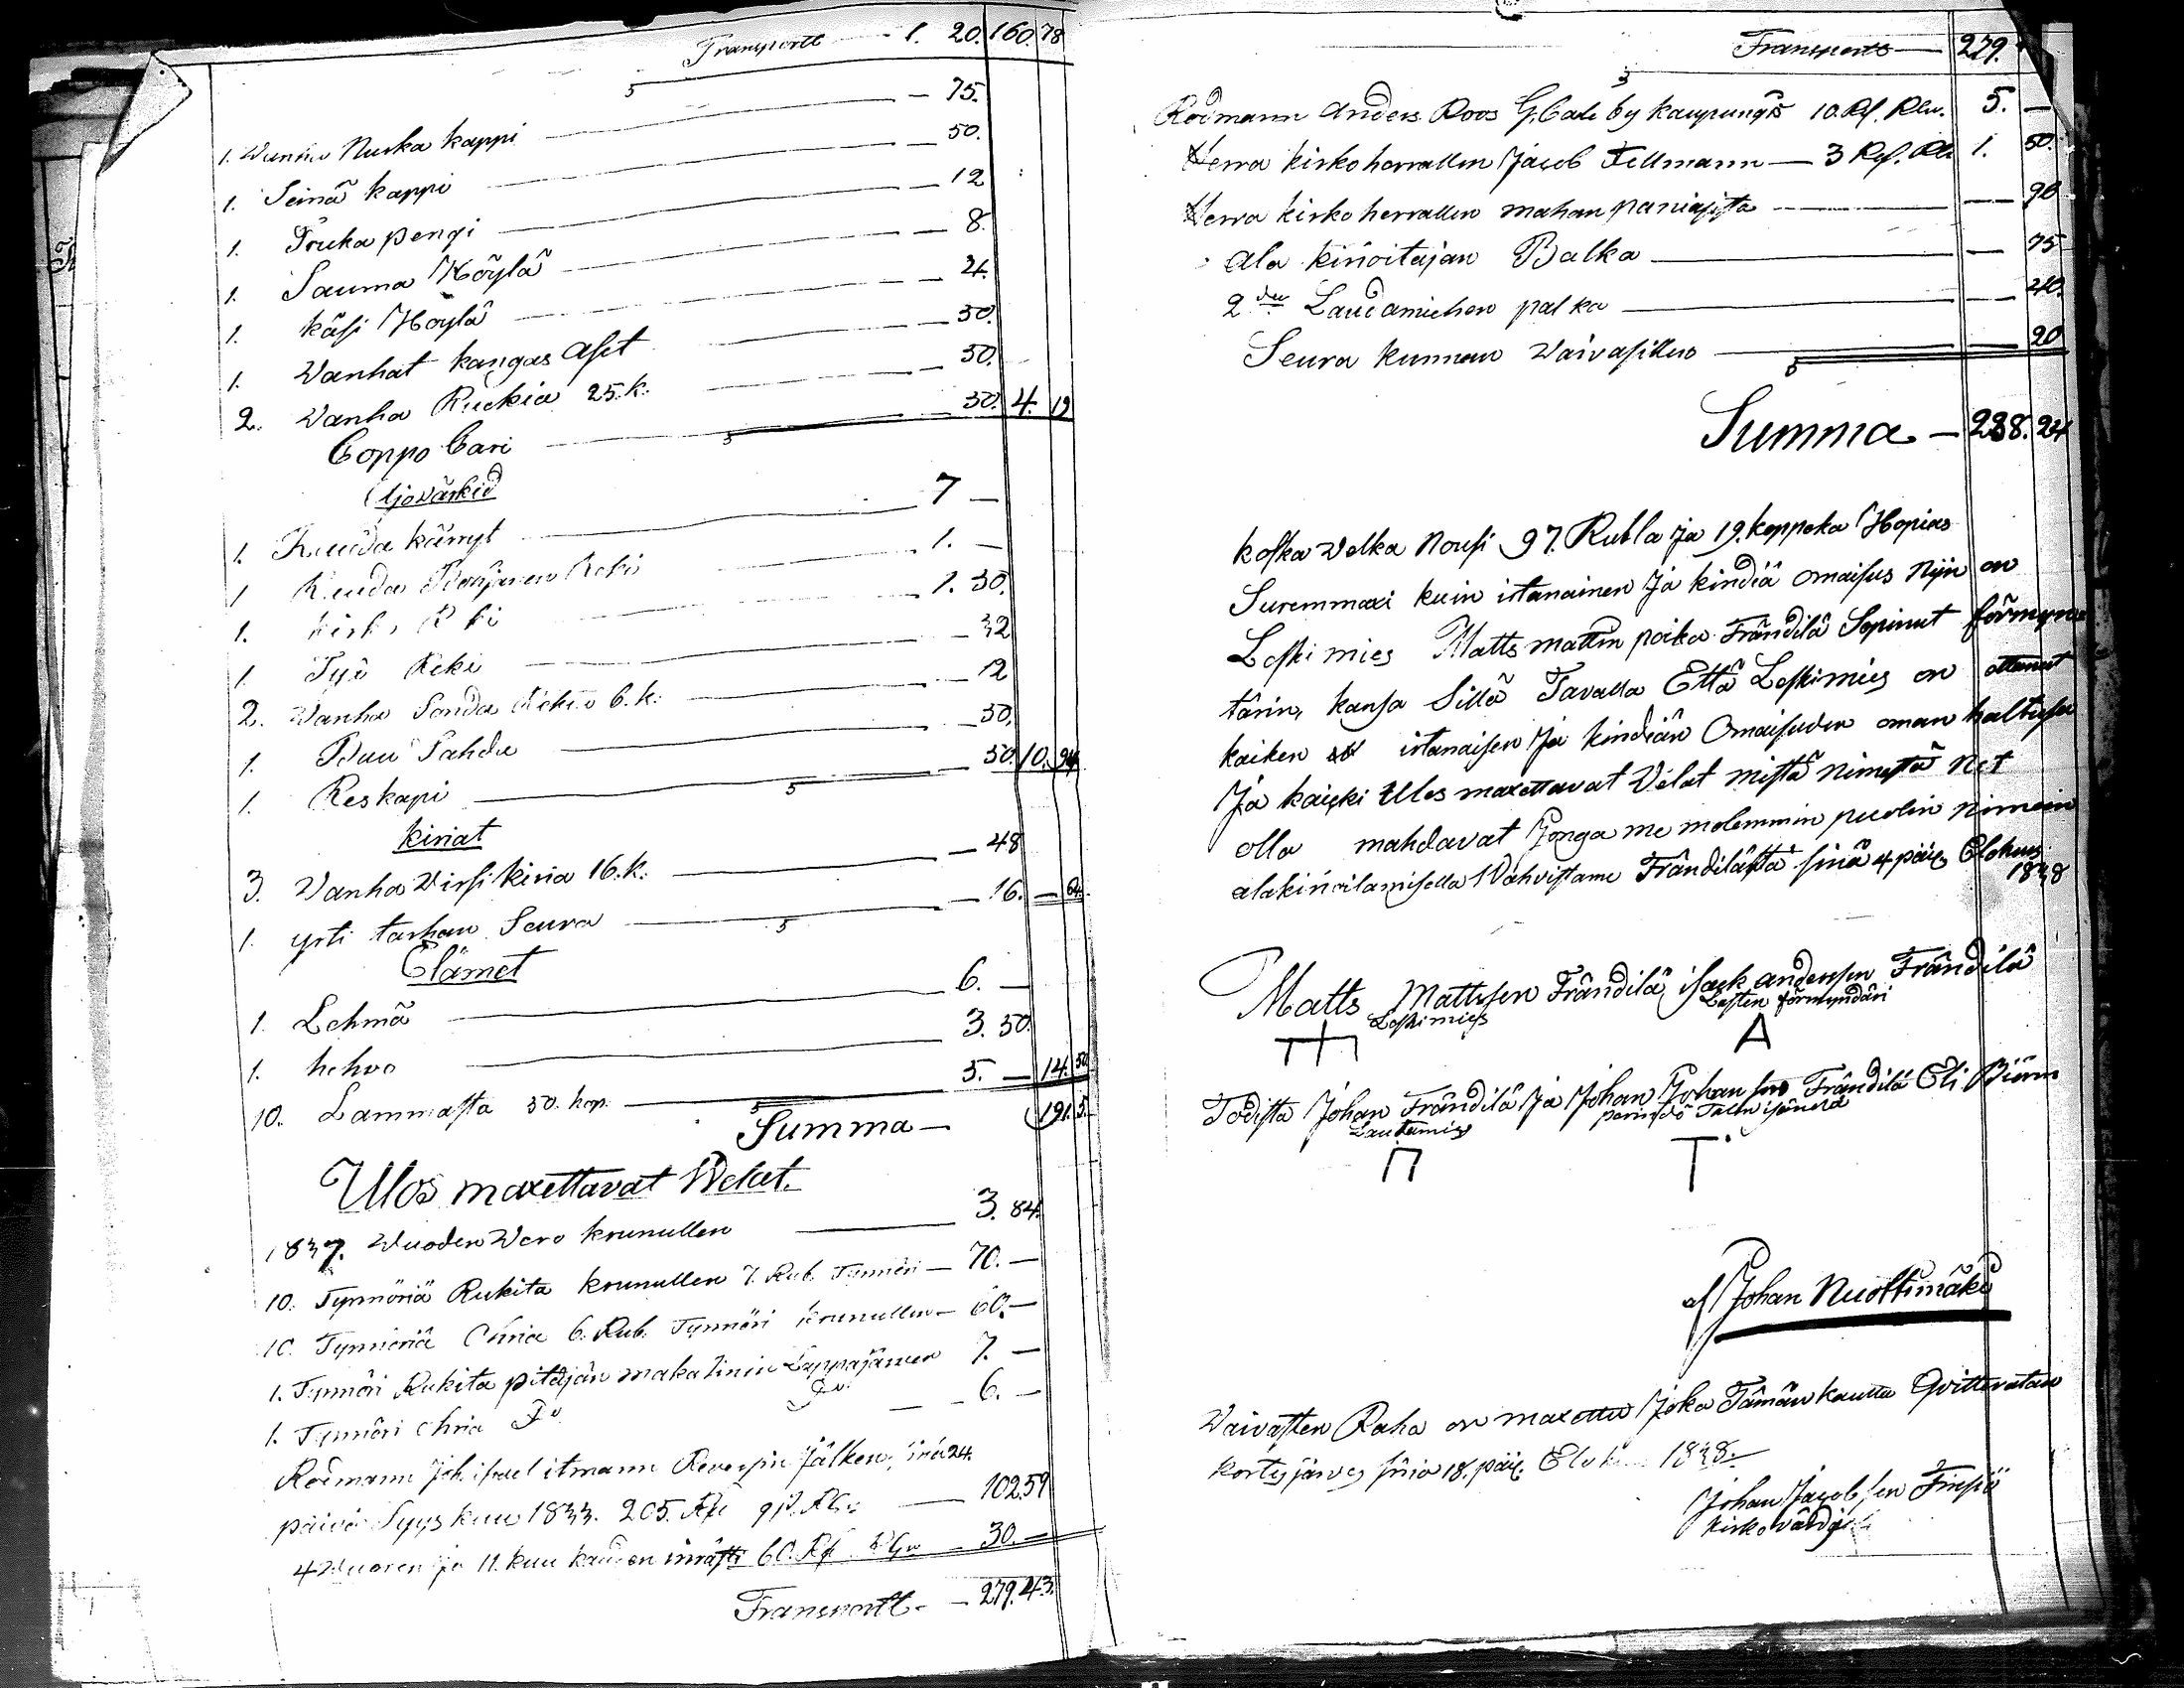 Transportt — 1. 20. 160. 78
1. Wanha Nurka kappi — 75.
1. Seinä kappi — 50.
1. Truka pengi — 12
1. Sauma Höylä — 8.
1. käsi Höylä — 4.
1. Wanhat kangas Aset — 50.
2. Wanha Ruckia 25.k. — 50.
Coppo Cari — 50. 4. 19
Ajovärkid
1. Ruuda kärryt — 7 —
1 Ruuda Reki — 1. —
1. kirko Reki — 1. 50.
1 Työ Reki — 32
2. Wanha Sonda Rekia 6.k. — 12
1. Puu Sahda — 50.
1. Reskapi — 50. 10. 94
kiriat
3. Vanha Virsi kiria 16.k. — 48
1. yrti tarhan Seura — 16. — 64.
Elämet
1. Lehmä — 6. —
1. hehvo — 3. 50.
10. Lammasta 50. kop. — 5. — 14. 50
Summa — 191. 5.
Ulos maxettavat Welat.
1837. Wuoden Wero krunullen — 3. 84.
10. Tynnöriä Rukita krunullen 7. Rub. Tynnöri — 70. —
10. Tynnöriä Ohria 6. Rub. Tynnöri krunullen — 60. —
1. Tynnöri Rukita pitäjän makasinin Lappajärven 7. —
1. Tynnöri Ohria Do Do — 6. —
Rodmann Joh. itmann Reversin Jälken, 24.
päivä Syys kuu 1833. 205. — 102.59
4 Wuoren ja 11. kuu kauden 60. — 30. —
Transportt — 279. 43.
Transport — 279.
Rodmann Anders Roos G. Carle by kaupungis 10. Rf. Rbr. 5. —
Herra kirkoherrallen Jacob Fellmann — 3 Rf. 1. 50.
Herra kirko herrallen mahan paniasista — 90
Ala kirioitajan Balka — 75
2den Laudamiehen palka — 40.
Seura kunnan Vaivasillen — 20
Summa — 288. 24
koska Velka Nousi 97. Rubla ja 19. koppeka Hopias
Suremmaxi kuin irtanainen Ja kindiä omaisus Nijn on
Leski mies Matts mattin poika Frändilä Sopinut förmyn
tärin, kansa Sillä Tavalla Että Leskimies on ottanut
kaiken irtanaisen Ja kindiän Omaisuden oman haltusa
Ja kaicki Ulos maxettavat Velat mistä nimestä Net
olla mahdavat Jonga me molemmin puolin nimein
alakirioitamisella Wahvistame Frändilästä sinä 4 päiv. Elokuus
1838
Matts Mattssen Frändilä isack andersson Frändilä
Leskimies Lasten förmyndäri
A
Todista Johan Frändilä Ja Johan Johan son Frändilä Eli Biörn
Lautamies perindö Talon isändä
af Johan Nuottimäki
Vaivasten Raha on maxettu Joka Tämän kautta Qvitteratan
kortesjärves sinä 18. päiv. Elok 1838.
Johan Jacobsen Finsiö
kirkovärdi